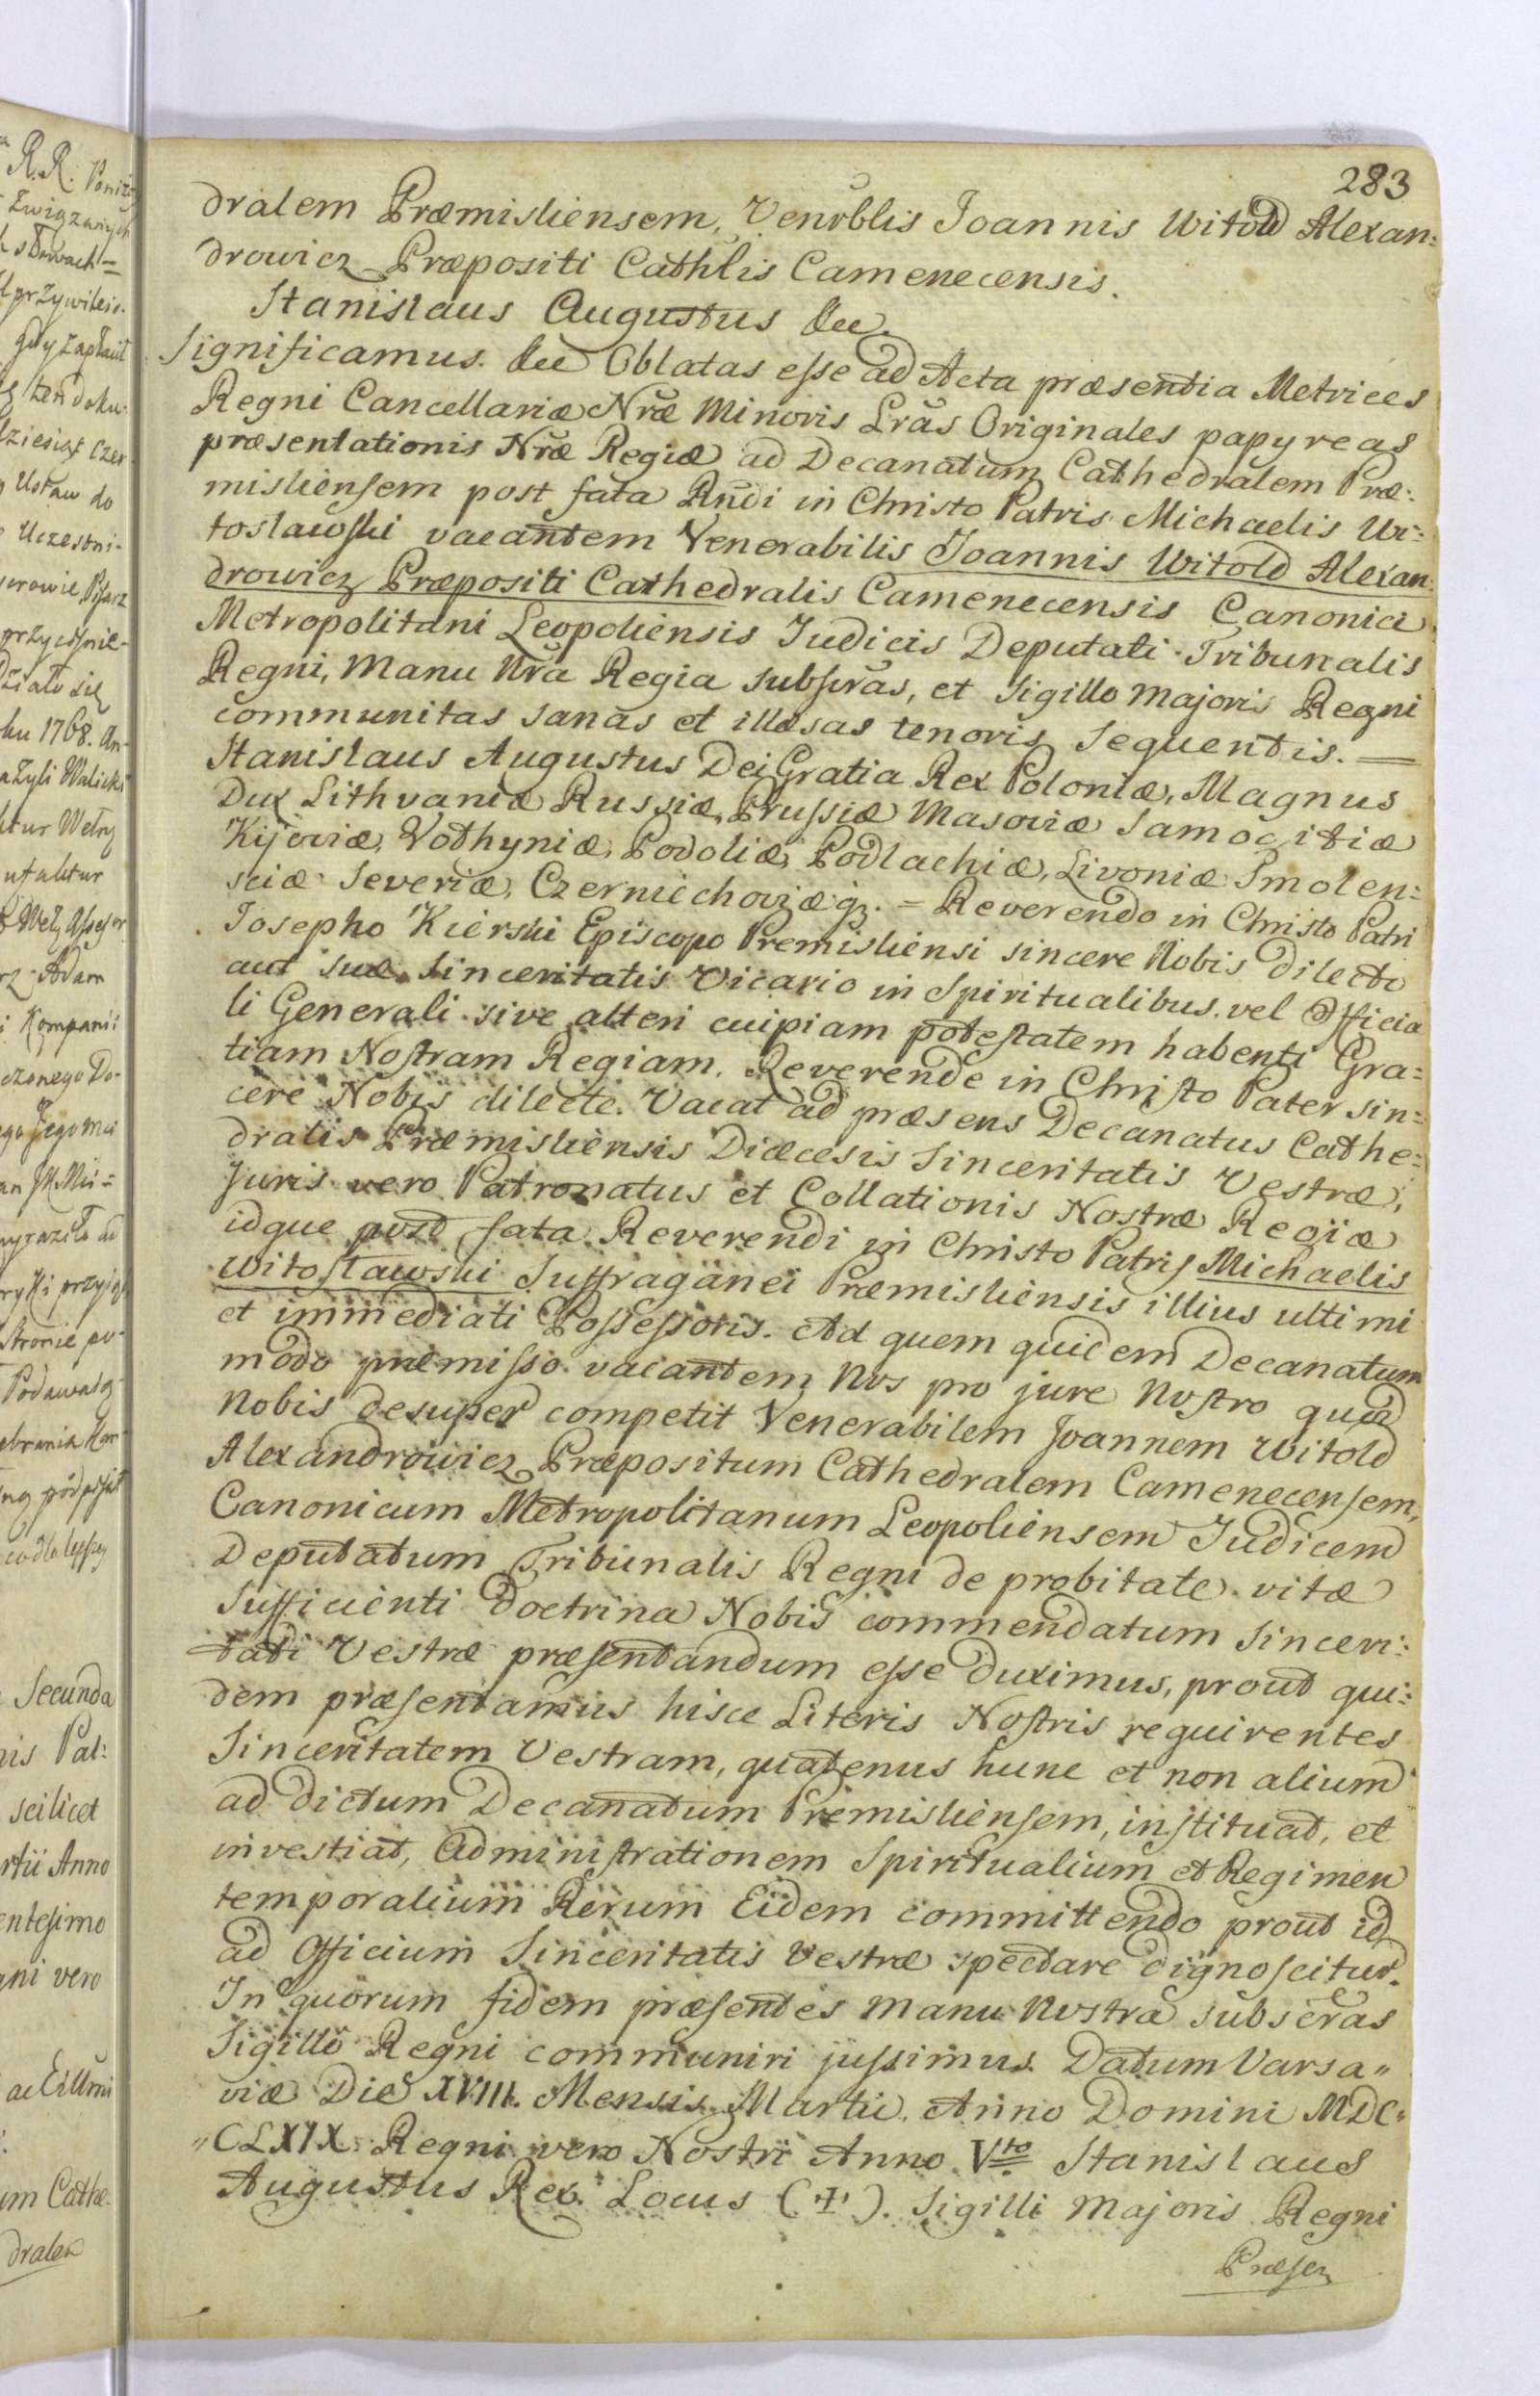 283
dralem Præmisliensem, Venrblis Joannis Witold Alexan:
drowicz Præpositi Cathlis Camenecensis.
Stanislaus Augustus &ce.
Significamus. &ce Oblatas esse ad Acta præsentia Metrices
Regni Cancellariæ Nræ Minoris Lras Originales papyreas
præsentationis Nræ Regiæ ad Decanatum Cathedralem Præ:
misliensem post fata Rndi in Christo Patris Michaelis Wi:
tosławski vacantem Venerabilis Joannis Witold Alexan:
drowicz Præpositi Cathedralis Camenecensis Canonici
Metropolitani Leopoliensis Judicis Deputati Tribunalis
Regni, Manu Nra Regia subscras, et Sigillo Majoris Regni
communitas sanas et illæsas tenoris sequentis. —
Stanislaus Augustus Dei Gratia Rex Poloniæ, Magnus
Dux Lithvaniæ Russiæ, Prussiæ Masoviæ Samogitiæ
Kijoviæ, Vołhyniæ, Podoliæ, Podlachiæ, Livoniæ Smolen:
sciæ Severiæ, Czerniechoviæq;. = Reverendo in Christo Patri
Josepho Kierski Episcopo Premisliensi sincere Nobis dilecto
aut suæ Sinceritatis Vicario in Spiritualibus vel Officia
li Generali sive alteri cuipiam potestatem habenti Gra:
tiam Nostram Regiam. Reverende in Christo Pater sin:
cere Nobis dilecte. Vacat ad præsens Decanatus Cathe:
dralis Præmisliensis Diæcesis Sinceritatis Vestræ,
Juris vero Patronatus et Collationis Nostræ Regiæ
idque post fata Reverendi in Christo Patris Michaelis
Witosławski Suffraganei Præmisliensis illius ultimi
et immediati Possessoris. Ad quem quidem Decanatum
modo præmisso vacantem Nos pro jure Nostro quod
Nobis desuper competit Venerabilem Joannem Witold
Alexandrowicz Præpositum Cathedralem Camenecensem,
Canonicum Metropolitanum Leopoliensem Judicem
Deputatum Tribunalis Regni de probitate vitæ
sufficienti Doctrina Nobis commendatum Sinceri:
tati Vestræ præsentandum esse duximus, prout qui:
dem præsentamus hisce Literis Nostris requirentes
Sinceritatem Vestram, quatenus hunc et non alium
ad dictum Decanatum Præmisliensem, instituat, et
investiat, Administrationem Spiritualium et Regimen
temporalium Rerum Eidem committendo prout id
ad Officium Sinceritatis Vestræ spectare dignoscitur.
In quorum fidem præsentes manu Nostra subscras
Sigillo Regni communiri jussimus. Datum Varsa„
viæ Die XVIII. Mensis Martii. Anno Domini MDC„
„CLXIX. Regni vero Nostri Anno Vto Stanislaus
Augustus Rex. Locus (+). Sigilli Majoris Regni
Præsen